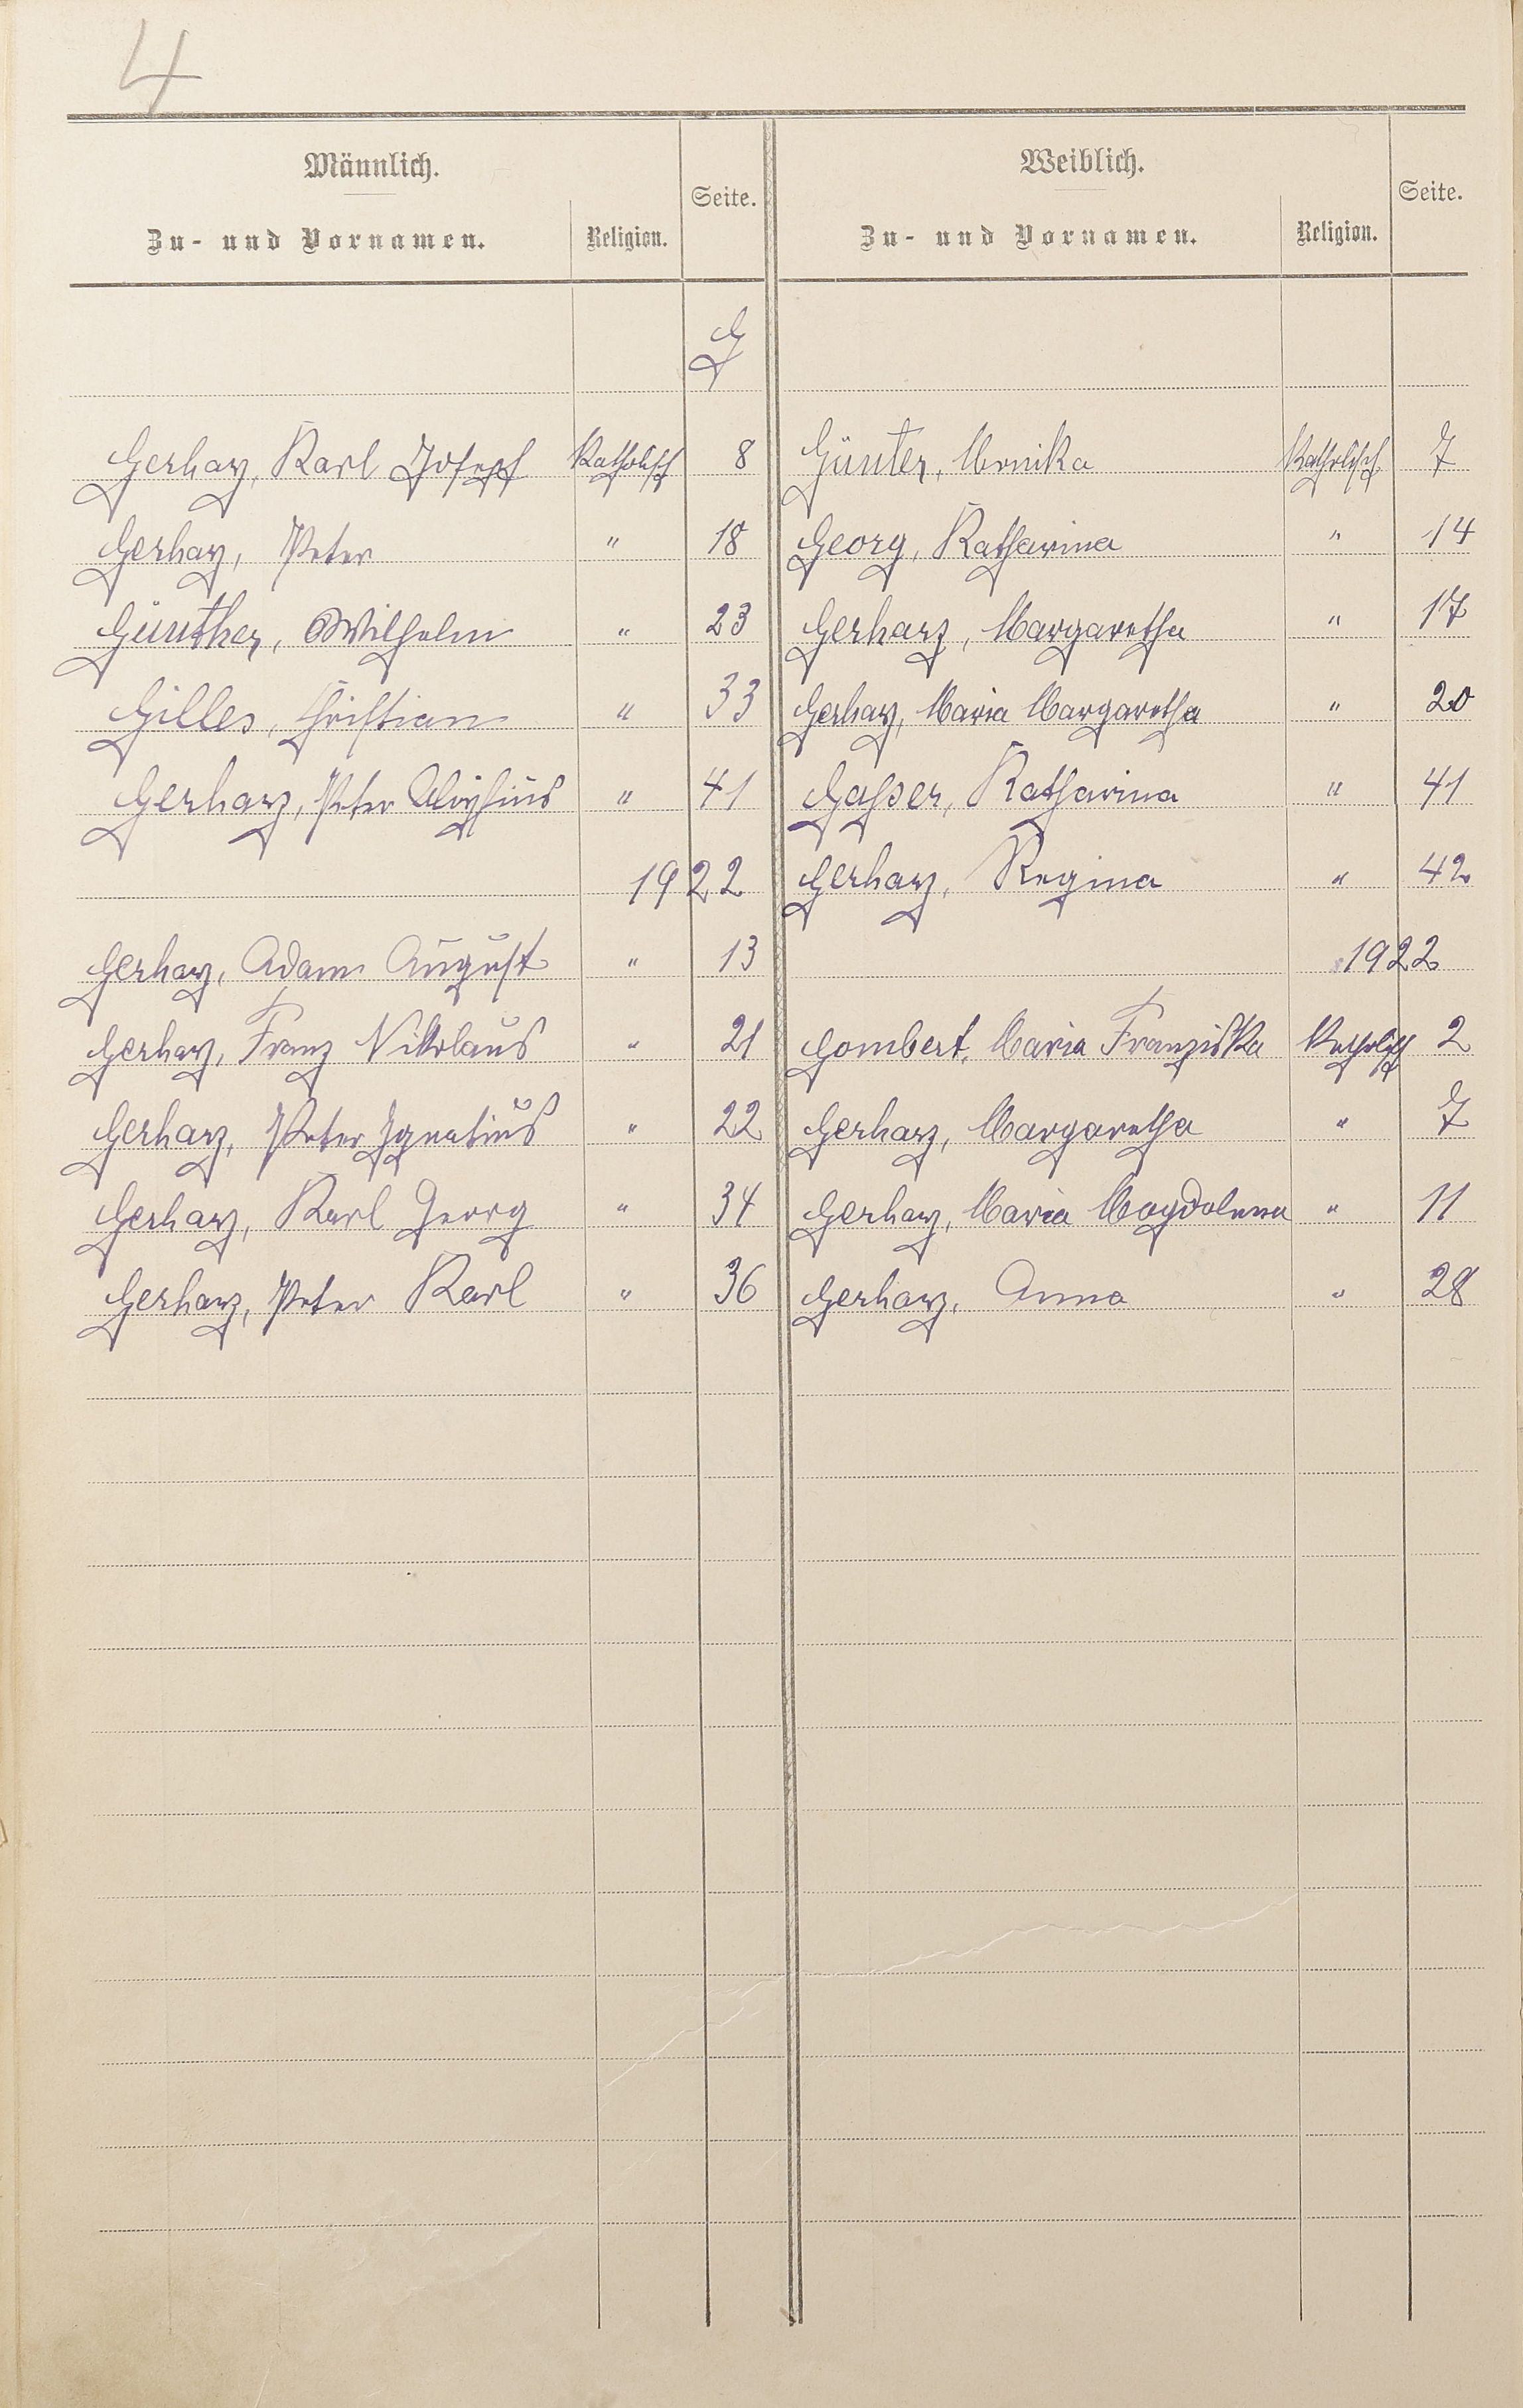 4
Männlich.
Zu- und Vornamen. Religion. Seite.
Weiblich.
Zu- und Vornamen. Religion. Seite.
G
Gerharz, Karl Josef Katholisch 8
Gerharz, Peter " 18
Günther, Wilhelm " 23
Gilles, Christian " 33
Gerharz, Peter Aloysius " 41
1922
Gerharz, Adam August " 13
Gerharz, Franz Nikolaus " 21
Gerharz, Peter Ignatius " 22
Gerharz, Karl Georg " 34
Gerharz, Peter Karl " 36
Günter, Monika Katholisch 7
Georg, Katharina " 14
Gerharz, Margaretha " 17
Gerharz, Maria Margaretha " 20
Gasser, Katharina " 41
Gerharz, Regina " 42
1922
Gombert, Maria Franziska Katholisch 2
Gerharz, Margaretha " 7
Gerharz, Maria Magdalena " 11
Gerharz, Anna " 28